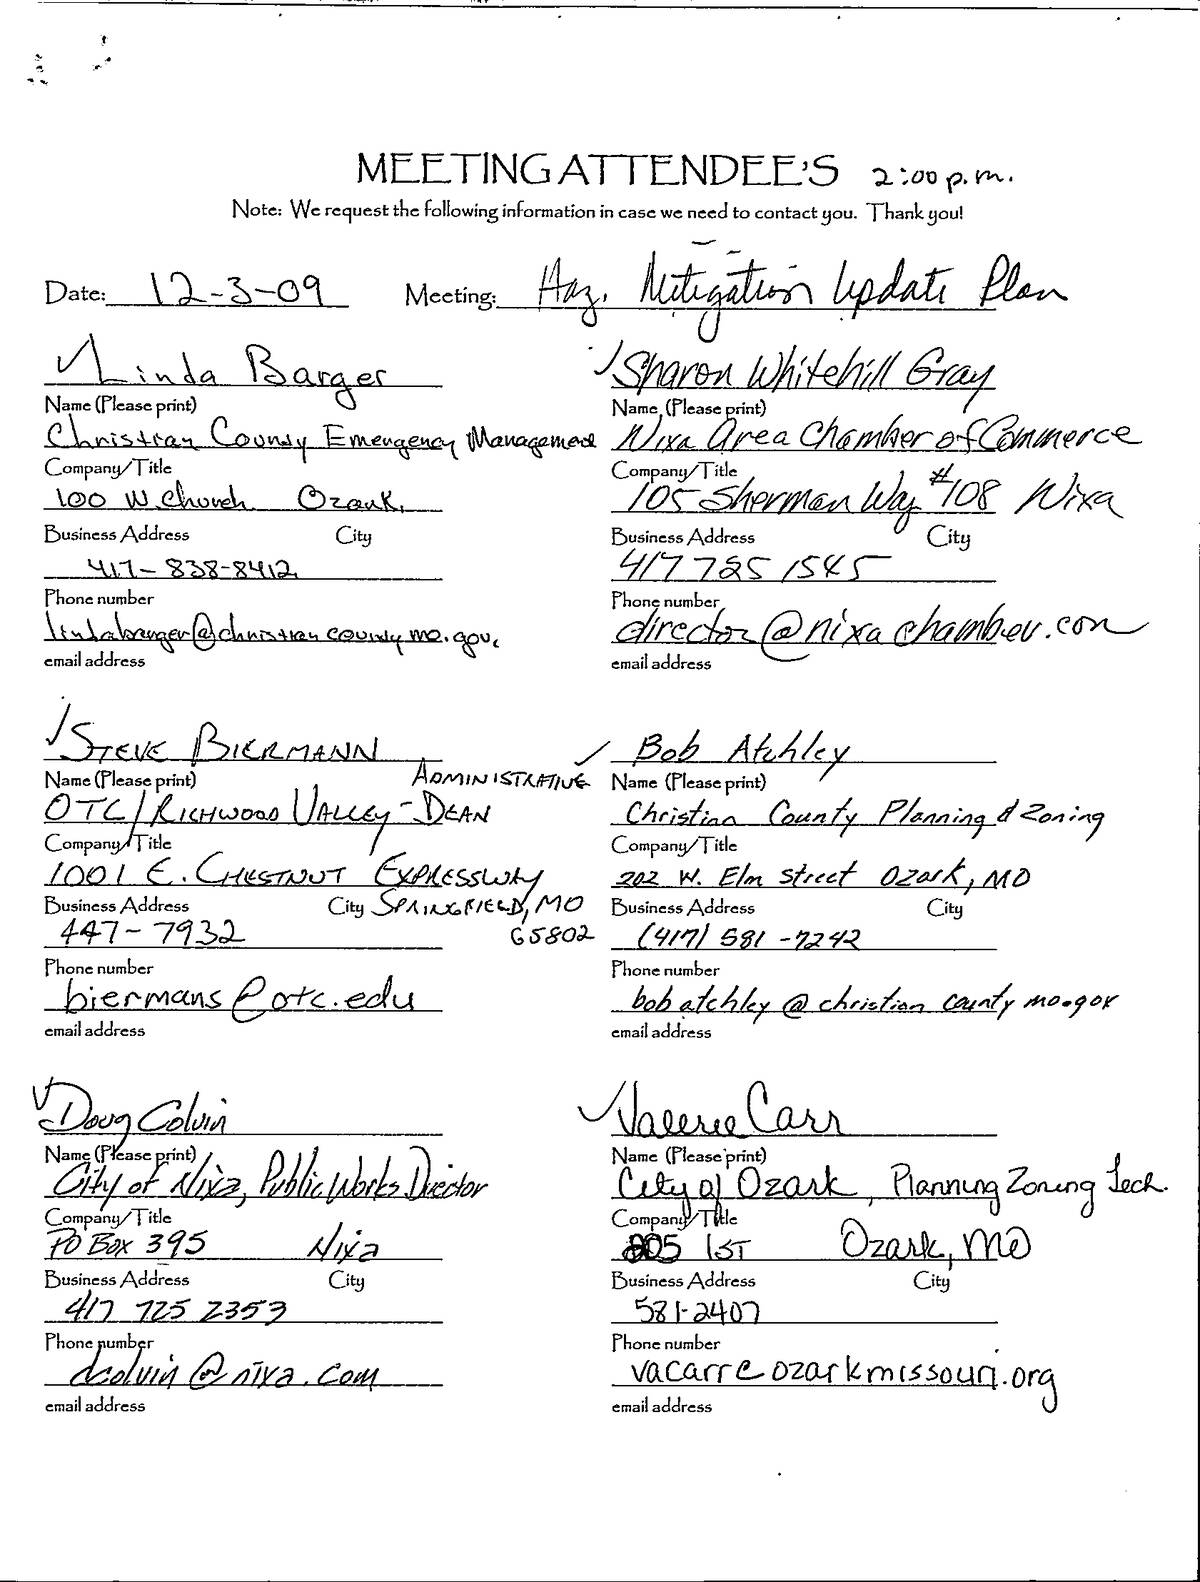 MEETING ATTENDEE'S 2:00 p.m.
Note: We request the following information in case we need to contact you. Thank you!
Date: 12-3-09 Meeting: Haz. Mitigation Update Plan
Linda Barger
Name (Please print)
Christian County Emergency Management
Company/Title
100 W. Church Ozark,
Business Address City
417-838-8412
Phone number
lindabarger@christiancountymo.gov.
email address
Sharon Whitehill Gray
Name (Please print)
Nixa Area Chamber of Commerce
Company/Title
105 Sherman Way #108 Nixa
Business Address City
417 725 1545
Phone number
director@nixachamber.com
email address
STEVE BIERMANN
Name (Please print) ADMINISTRATIVE
OTC/RICHWOOD VALLEY-DEAN
Company/Title
1001 E. CHESTNUT EXPRESSWAY
Business Address City SPRINGFIELD, MO
447-7932 65802
Phone number
biermans@otc.edu
email address
Bob Atchley
Name (Please print)
Christian County Planning & Zoning
Company/Title
202 W. Elm Street Ozark, MO
Business Address City
(417) 581-7242
Phone number
bobatchley@christiancountymo.gov
email address
Doug Colvin
Name (Please print)
City of Nixa, Public Works Director
Company/Title
PO Box 395 Nixa
Business Address City
417 725 2353
Phone number
dcolvin@nixa.com
email address
Valerie Carr
Name (Please print)
City of Ozark, Planning Zoning Tech.
Company/Title
205 1ST Ozark, MO
Business Address City
581-2407
Phone number
vacarr@ozarkmissouri.org
email address